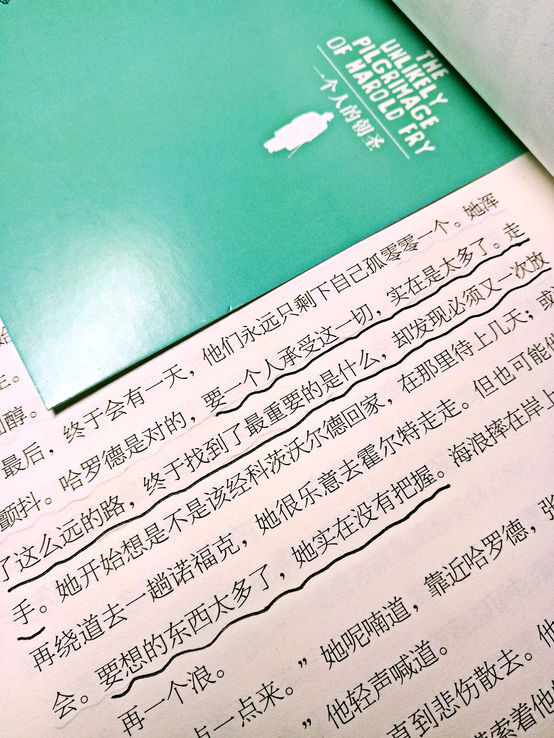 THE
UNLIKELY
PILGRIMAGE
OF HAROLD FRY
一个人的朝圣
最后，终于会有一天，他们永远只剩下自己孤零零一个。她浑
颤抖。哈罗德是对的，要一个人承受这一切，实在是太多了。走
了这么远的路，终于找到了最重要的是什么，却发现必须又一次放
手。她开始想是不是该经科茨沃尔德回家，在那里待上几天；或
再绕道去一趟诺福克，她很乐意去霍尔特走走。但也可能
会。要想的东西太多了，她实在没有把握。海浪摔在岸上
再一个浪。
点一点来。”她呢喃道，靠近哈罗德，张
”他轻声喊道。
直到悲伤散去。他
索着他